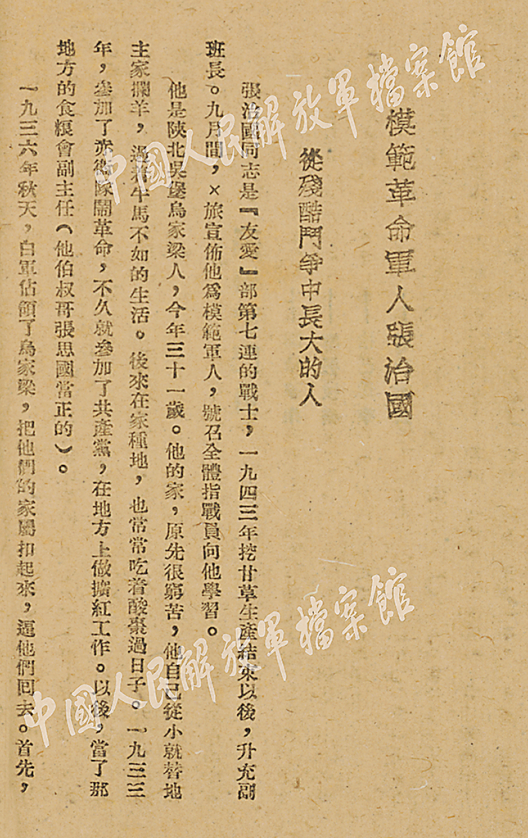 模範革命軍人張治國
從殘酷鬥爭中長大的人
張治國同志是『友愛』部第七連的戰士，一九四三年挖甘草生產結束以後，升充副
班長。九月間，×旅宣佈他爲模範軍人，號召全體指戰員向他學習。
他是陝北吳堡烏家梁人，今年三十一歲。他的家，原先很窮苦，他自己從小就替地
主家攔羊，過着牛馬不如的生活。後來在家種地，也常常吃着酸棗過日子。一九三三
年，參加了赤衛隊鬧革命，不久就參加了共產黨，在地方上做擴紅工作。以後，當了那
地方的食糧會副主任（他伯叔哥張思國當正的）。
一九三六年秋天，白軍佔領了烏家梁，把他們的家屬扣起來，逼他們回去。首先，
中國人民解放軍檔案館
中國人民解放軍檔案館